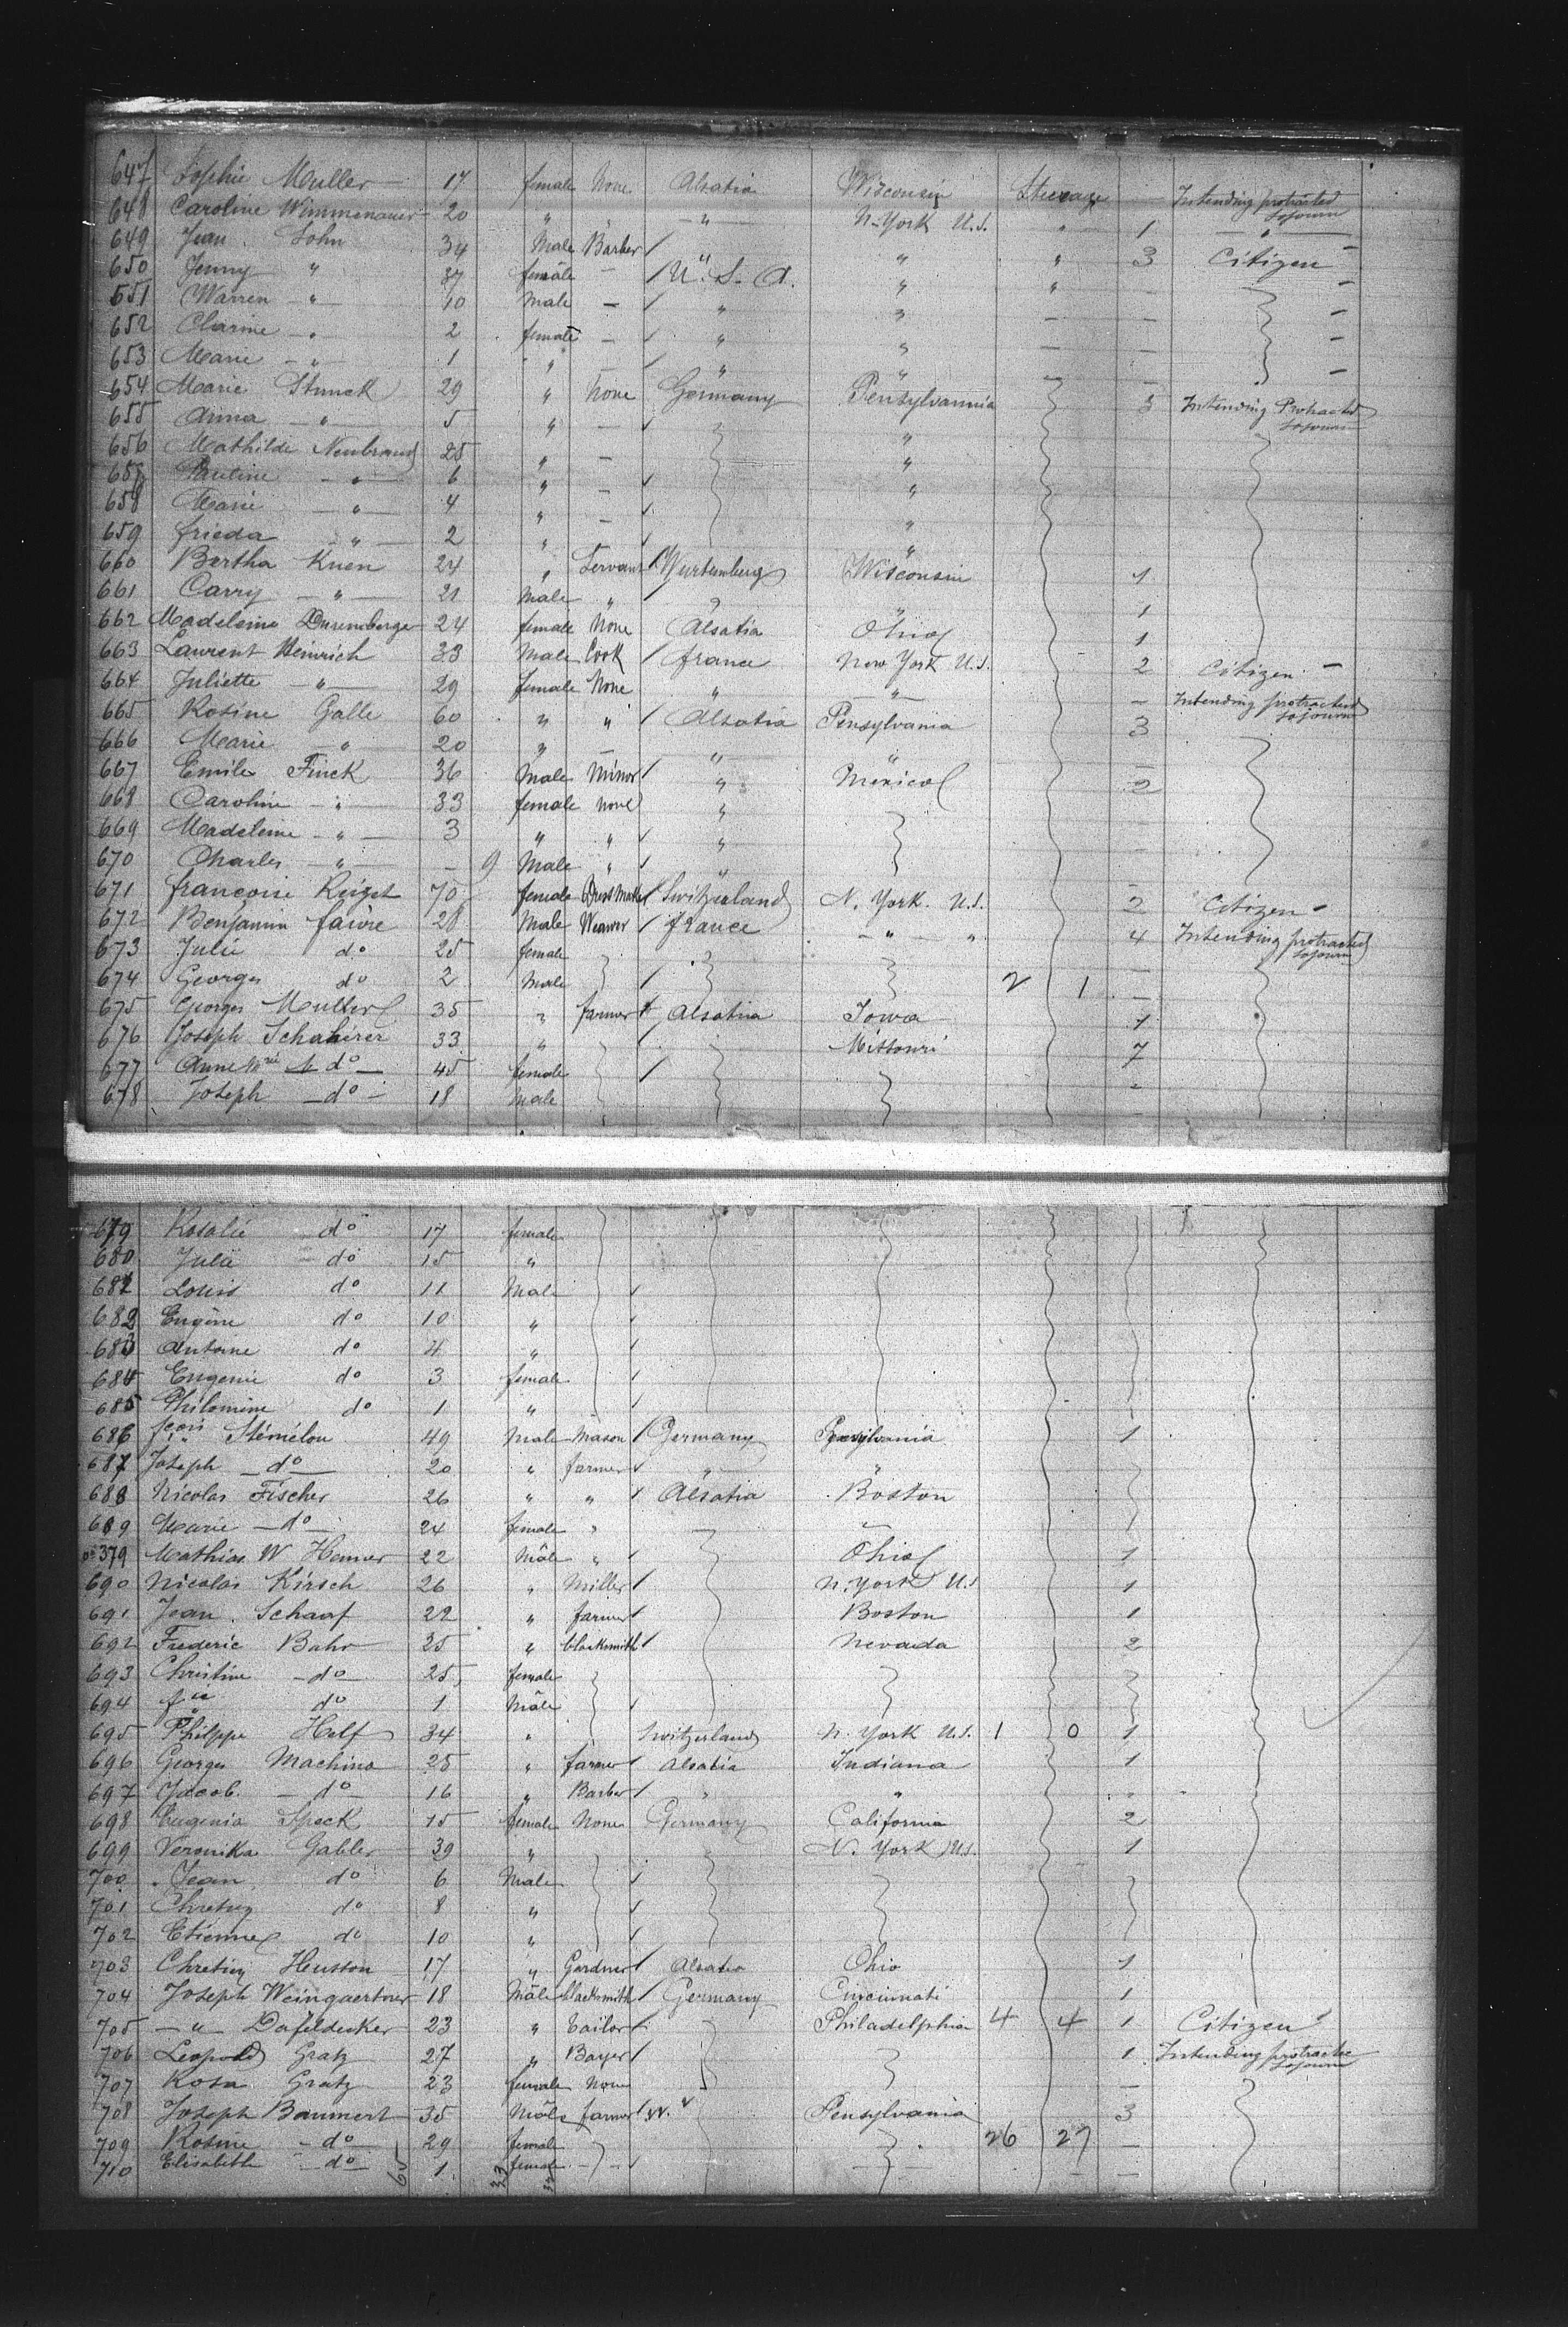 647 Sophie Muller 17 female None Alsatia Wisconsin Steerage Intending protracted sojourn
648 Caroline Wimmenauer 20 " " — " — N-York U.S. " 1 — " —
649 Jean John 34 Male Barber / " " 3 Citizen —
650 Jenny " 37 female — / U. S. A. " " —
651 Warren — " — 10 Male — / " " — —
652 Clarine — " 2 female — / " " — —
653 Marie — " — 1 " — / " " — —
654 Marie Strunck 29 " None Germany Pensylvannia 5 Intending Protracted sojourn
655 Anna — " — 5 " — "
656 Mathilde Neubrand 25 " — "
657 Pauline — " — 6 " — "
658 Marie — " — 4 " —
659 frieda — " — 2 " "
660 Bertha Kuen 24 " Servant Wurtemberg Wisconsin 1
661 Carry — " — 21 Male " / " " 1
662 Madeleine Duremberger 24 female None Alsatia Ohio 1
663 Laurent Heinrich 33 Male Cook / france New York U.S. 2 Citizen —
664 Juliette — " — 29 female None " — " — — Intending protracted sojourn
665 Rosine Galle 60 " " / Alsatia Pensylvania 3
666 Marie — " 20 " — " " —
667 Emile Finck 36 Male Minor / " Mexico 2
668 Caroline — " — 33 female None "
669 Madeleine — " — 3 " " "
670 Charles — " — — 9 Male " "
671 francoise 70 female Dress Maker Switzerland N. York. U.S. 2 Citizen —
672 Benjamin faivre 28 Male Weaver / france — " — " 4 Intending protracted sojourn
673 Julie do 25 female —
674 Georges do 2 Male / 2 1 —
675 Georges Muller 35 " farmer Alsatia Iowa 1
676 Joseph Schahirer 33 " / Missouri 7
677 Anne Mrie do — 45 female / -
678 Joseph — do — 18 Male —
679 Rosalie do 17 female
680 Julie do 15 "
681 Louis do 11 Male
682 Eugène do 10 "
683 Antoine do 4 "
684 Eugenie do 3 female
685 Philomine do 1 "
686 Stémélou 49 Male Mason / Germany Pensylvania 1
687 Joseph — do — 20 " farmer " "
688 Nicolas Fischer 26 " " / Alsatia Boston
689 Marie — do — 24 female "
379 Mathias W 22 Male " Ohio 1
690 Nicolas Kirsch 26 " Miller / N. York U.S 1
691 Jean Schaaf 22 " farmer Boston 1
692 Frederic Bahr 25 " blacksmith / Nevada 2
693 Christine — do — 25 female
694 do 1 Male
695 Philippe Helf 34 " Switzerland N. York U.S. 1 0 1
696 Georges Machino 25 " farmer / Alsatia Indiana 1
697 Jacob — do — 16 " Barber / " "
698 Eugenia Speck 15 female None Germany California 2
699 Veronika Gabler 39 " N. York U.S. 1
700 Jean do 6 Male
701 Chretien do 8 "
702 Etienne do 10 "
703 Chretien Husson 17 " Gardner / Alsatia Ohio 1
704 Joseph Weingaertner 18 Male blacksmith / Germany Cincinnati 1
705 — " — Dafeldecker 23 " tailor Philadelphia 4 4 1 Citizen
706 Leopold Gratz 27 " / 1 Intending protracte sojourn
707 Rosa Gratz 23 female None —
708 Joseph Bammert 35 Male farmer / Pensylvania 3
709 Rosine — do — 29 female 26 27 —
710 Elisabeth — do — 65 1 33 32 female — — —